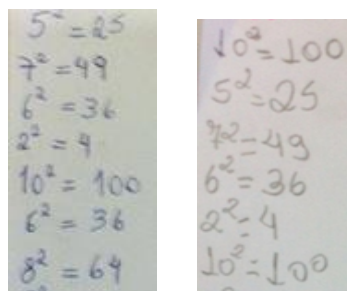 5² = 25
7² = 49
6² = 36
2² = 4
10² = 100
6² = 36
8² = 64
10² = 100
5² = 25
7² = 49
6² = 36
2² = 4
10² = 100